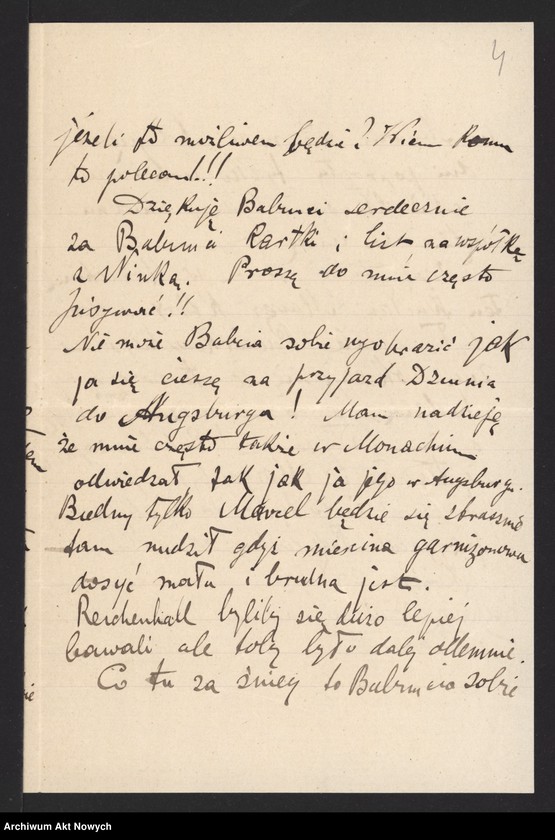 4
jeżeli to możliwem będzie? Wiem komu
to polecam!!!
Dziękuję Babuni serdecznie
za Babuni Kartki i list na wspólkę
z Ninką. Proszę do mnie często
pisywać!!
Nie może Babcia sobie wyobrazić jak
ja się cieszę na przyjazd Dziunia
do Augsburga! Mam nadzieję
że mnie często także w Monachium
odwiedzał, tak jak ja jego w Augsburgu.
Biedny tylko Marcel będzie się strasznie
tam nudził gdyż mieścina garnizonowa
dosyć mała i brudna jest.
Reichenhall byliby się dużo lepiej
bawali ale toby było daley odemnie.
Co tu za śnieg to Babunia sobie
Archiwum Akt Nowych